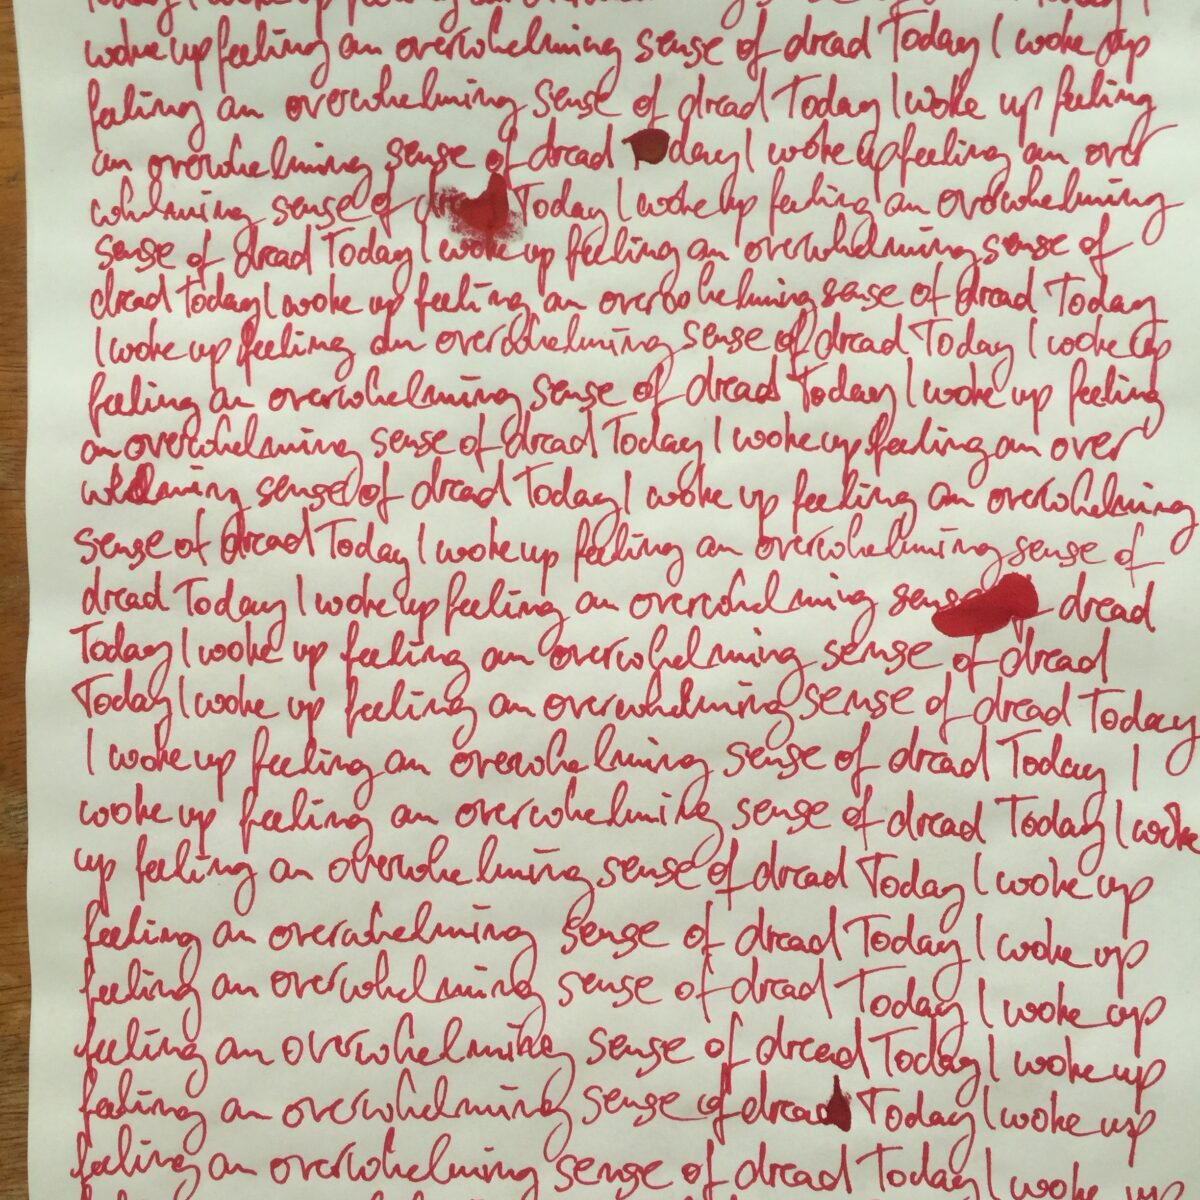 Today I woke up feeling an overwhelming sense of dread Today I
woke up feeling an overwhelming sense of dread Today I woke up
feeling an overwhelming sense of dread Today I woke up feeling
an overwhelming sense of dread Today I woke up feeling an over
whelming sense of dread Today I woke up feeling an overwhelming
sense of dread Today I woke up feeling an overwhelming sense of
dread Today I woke up feeling an overwhelming sense of dread Today
I woke up feeling an overwhelming sense of dread Today I woke up
feeling an overwhelming sense of dread Today I woke up feeling
an overwhelming sense of dread Today I woke up feeling an over
whelming sense of dread Today I woke up feeling an overwhelming
sense of dread Today I woke up feeling an overwhelming sense of
dread Today I woke up feeling an overwhelming sense dread
Today I woke up feeling an overwhelming sense of dread
Today I woke up feeling an overwhelming sense of dread Today
I woke up feeling an overwhelming sense of dread Today I
woke up feeling an overwhelming sense of dread Today I woke
up feeling an overwhelming sense of dread Today I woke up
feeling an overwhelming sense of dread Today I woke up
feeling an overwhelming sense of dread Today I woke up
feeling an overwhelming sense of dread Today I woke up
feeling an overwhelming sense of dread Today I woke up
feeling an overwhelming sense of dread Today I woke up